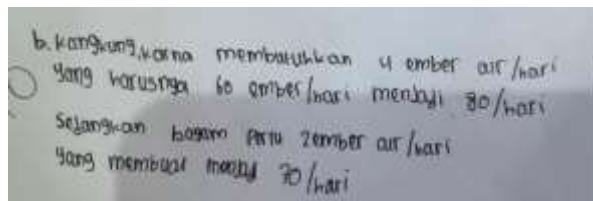 b. kangkung, karna membutuhkan 4 ember air/hari
yang harusnya 60 ember/hari menjadi 80/hari
Sedangkan bayam perlu 2 ember air/hari
yang membuat menjadi 70/hari